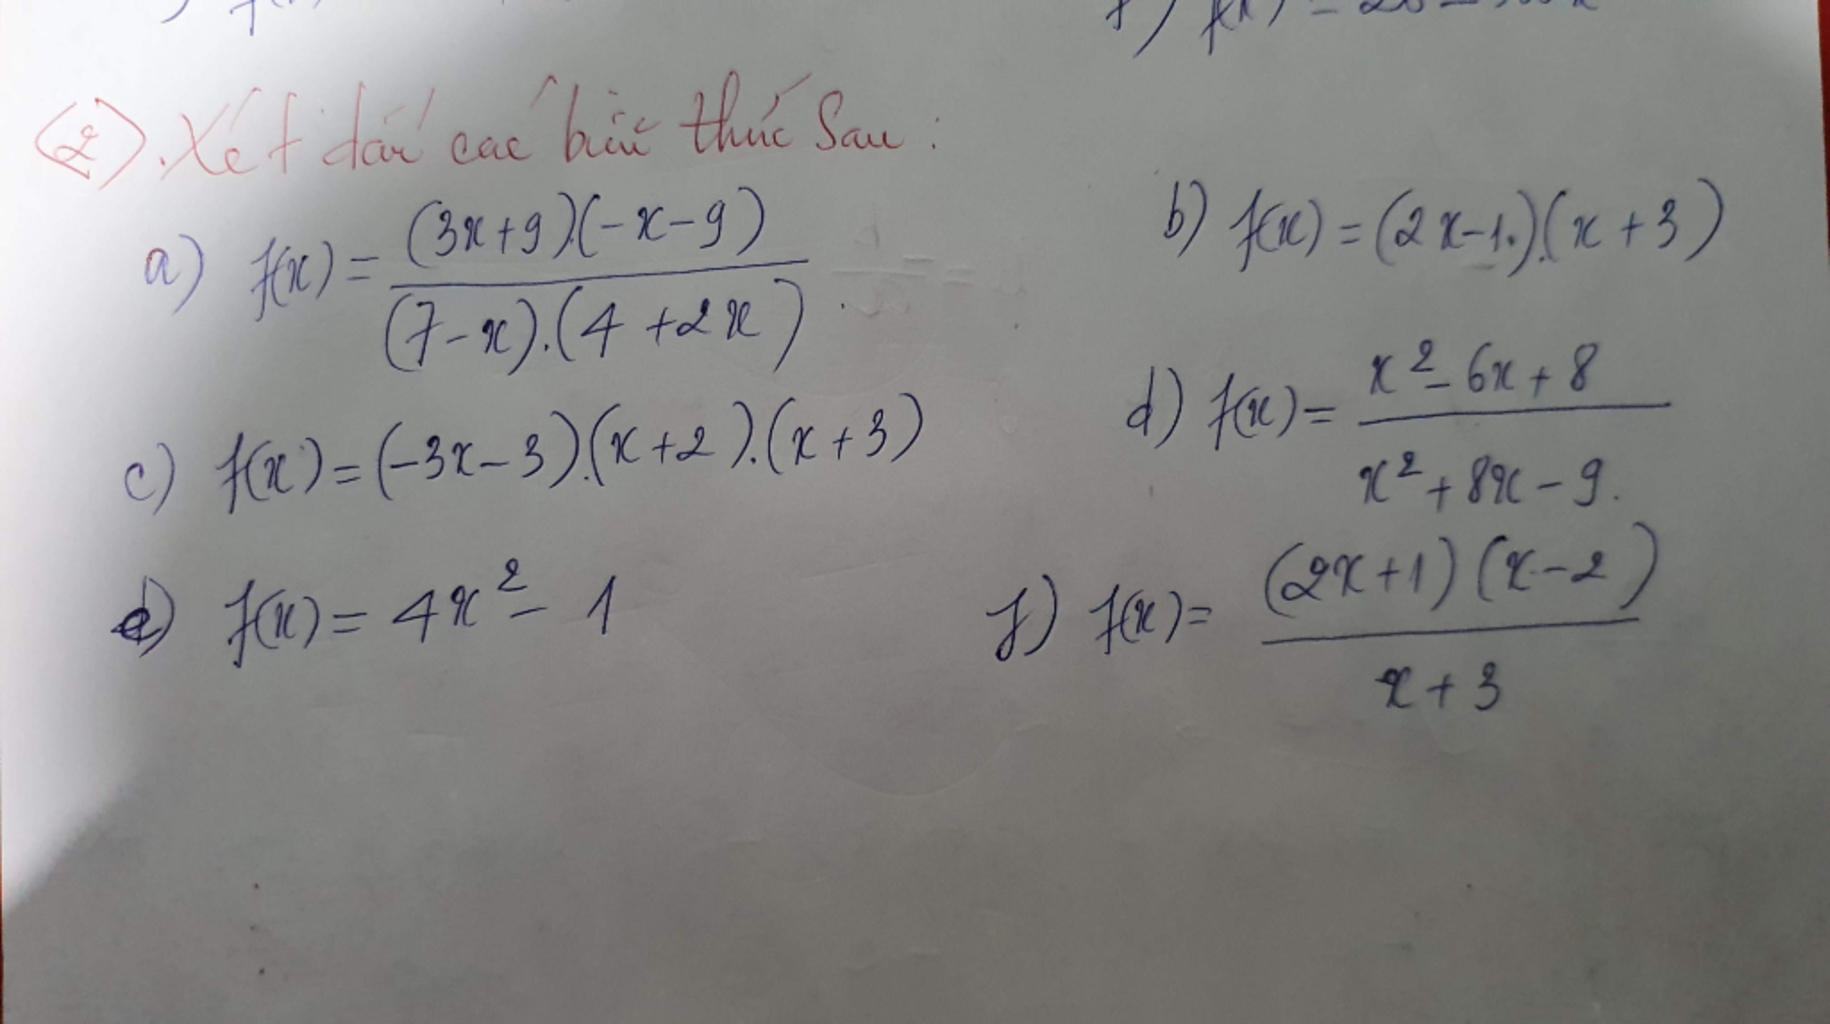 f(x)
②. Xét dấu các biểu thức sau:
a) f(x) = (3x+9).(-x-9) / (7-x).(4+2x)
b) f(x) = (2x-1).(x+3)
c) f(x) = (-3x-3).(x+2).(x+3)
d) f(x) = x² - 6x + 8 / x² + 8x - 9.
e) f(x) = 4x² - 1
f) f(x) = (2x+1)(x-2) / x+3